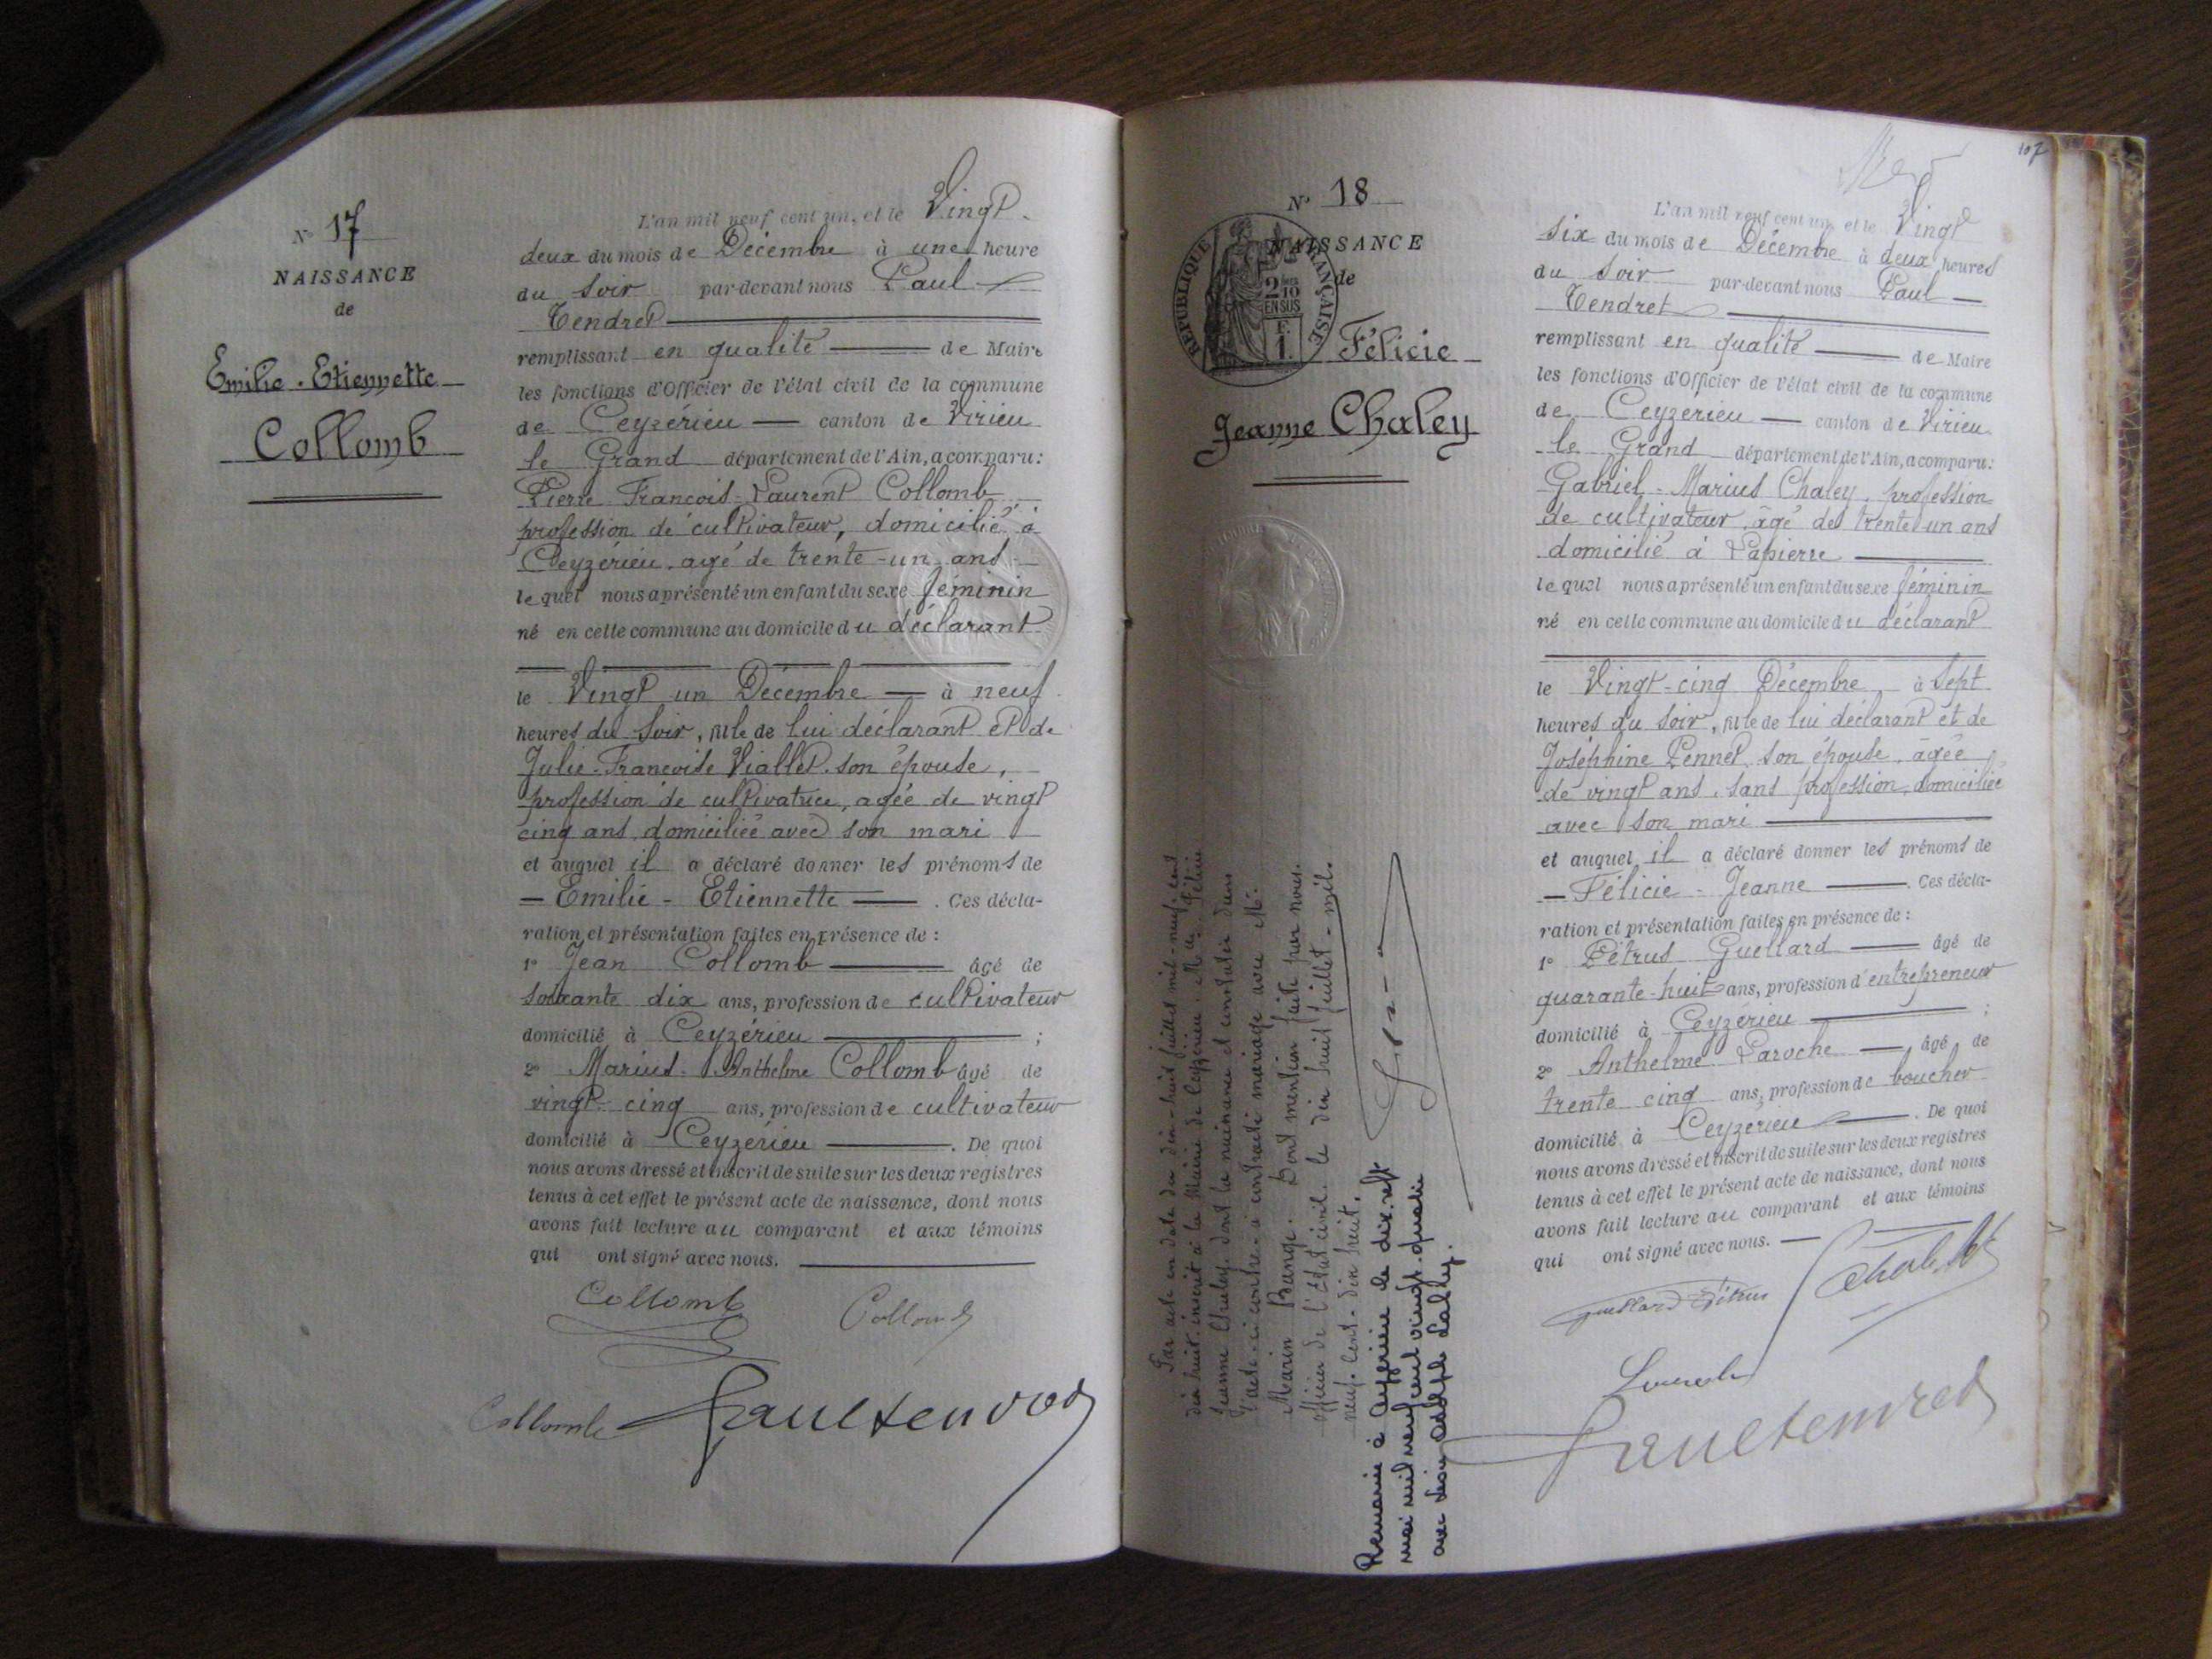 N° 17
NAISSANCE
de
Emilie-Etiennette
Collomb
L'an mil neuf cent un, et le Vingt-
deux du mois de Décembre à une heure
du Soir par-devant nous Paul
Tendret
remplissant en qualité de Maire
les fonctions d'Officier de l'état civil de la commune
de Ceyzérieu canton de Virieu
le Grand département de l'Ain, a comparu:
Pierre François-Laurent Collomb
profession de cultivateur, domicilié à
Ceyzérieu, agé de trente-un ans
lequel nous a présenté un enfant du sexe féminin
né en cette commune au domicile du déclarant
le Vingt un Décembre à neuf
heures du Soir, fille de lui déclarant et de
Julie-Francoise Viallet son épouse,
profession de cultivatrice, agée de vingt
cinq ans, domiciliée avec son mari
et auquel il a déclaré donner les prénoms de
Emilie-Etiennette. Ces décla-
ration et présentation faites en présence de:
1° Jean Collomb âgé de
soixante dix ans, profession de cultivateur
domicilié à Ceyzérieu;
2° Marius-Anthelme Collomb âgé de
vingt-cinq ans, profession de cultivateur
domicilié à Ceyzérieu. De quoi
nous avons dressé et inscrit de suite sur les deux registres
tenus à cet effet le présent acte de naissance, dont nous
avons fait lecture au comparant et aux témoins
qui ont signé avec nous.
Collomb Collomb
Collomb Paul tendret
107
N° 18
NAISSANCE
de
RÉPUBLIQUE FRANÇAISE
2/10
EN SUS
F.
1.
Félicie
Jeanne Chaley
L'an mil neuf cent un, et le Vingt
six du mois de Décembre à deux heures
du Soir par-devant nous Paul
Tendret
remplissant en qualité de Maire
les fonctions d'Officier de l'état civil de la commune
de Ceyzérieu canton de Virieu
le Grand département de l'Ain, a comparu:
Gabriel-Marius Chaley, profession
de cultivateur, âgé de trente-un ans
domicilié à Lapierre
lequel nous a présenté un enfant du sexe féminin
né en cette commune au domicile du déclarant
le Vingt-cinq Décembre à Sept
heures du Soir, fille de lui déclarant et de
Joséphine Pennet son épouse, âgée
de vingt ans, sans profession, domiciliée
avec son mari
et auquel il a déclaré donner les prénoms de
Félicie-Jeanne. Ces décla-
ration et présentation faites en présence de:
1° Pétrus Guellard âgé de
quarante-huit ans, profession d'entrepreneur
domicilié à Ceyzérieu;
2° Anthelme Laroche âgé de
trente cinq ans, profession de boucher
domicilié à Ceyzérieu. De quoi
nous avons dressé et inscrit de suite sur les deux registres
tenus à cet effet le présent acte de naissance, dont nous
avons fait lecture au comparant et aux témoins
qui ont signé avec nous.
Guellard Pétrus Chaley
Paul tendret
Par acte en date du dix-huit juillet mil-neuf-cent
dix huit, inscrit à la Mairie de Ceyzérieu, Félicie
Jeanne Chaley, dont la naissance est constatée dans
l'acte ci-contre a contracté mariage avec Mr.
Marin Bange. Dont mention faite par nous,
officier de l'état civil. le dix huit juillet-mil-
neuf-cent-dix huit.
Remariée à Ceyzérieu le dix-sept
mai mil neuf cent vingt-quatre
avec Léon